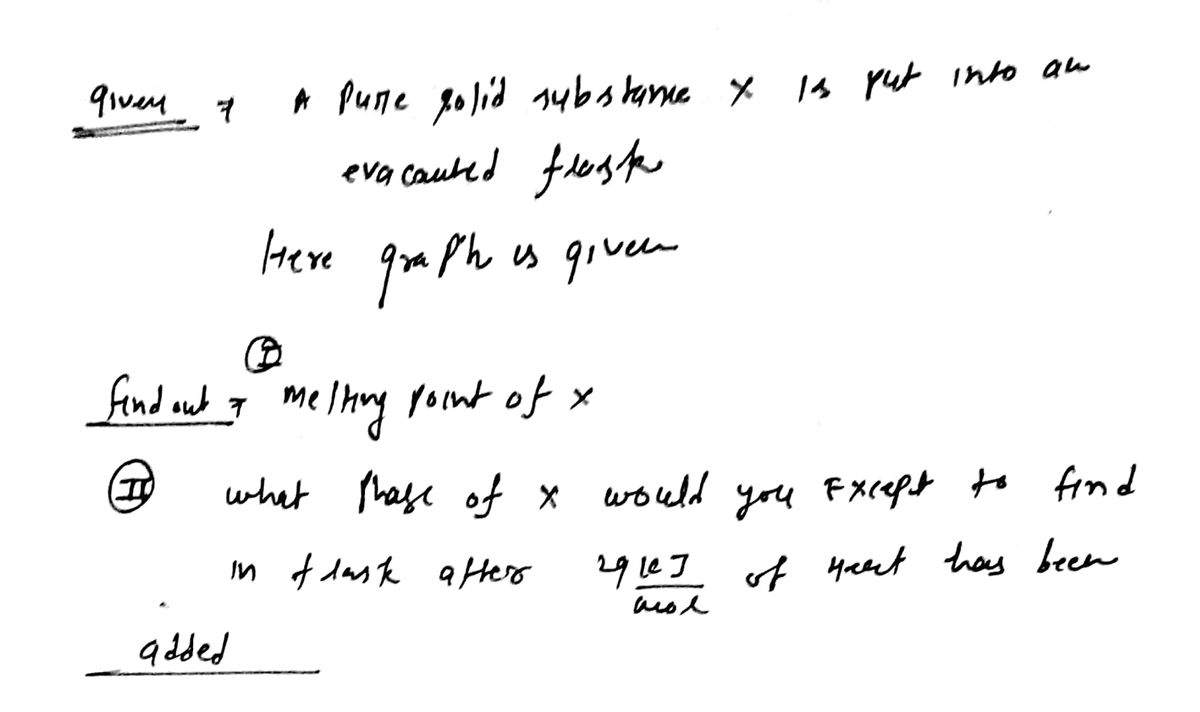 given → A Pure solid substance X is put into an
evacauted flask
Here graph is given
(I)
find out → melting point of x
(II) what Phase of x would you Except to find
in flask after 29 kJ/mol of Heat has been
added